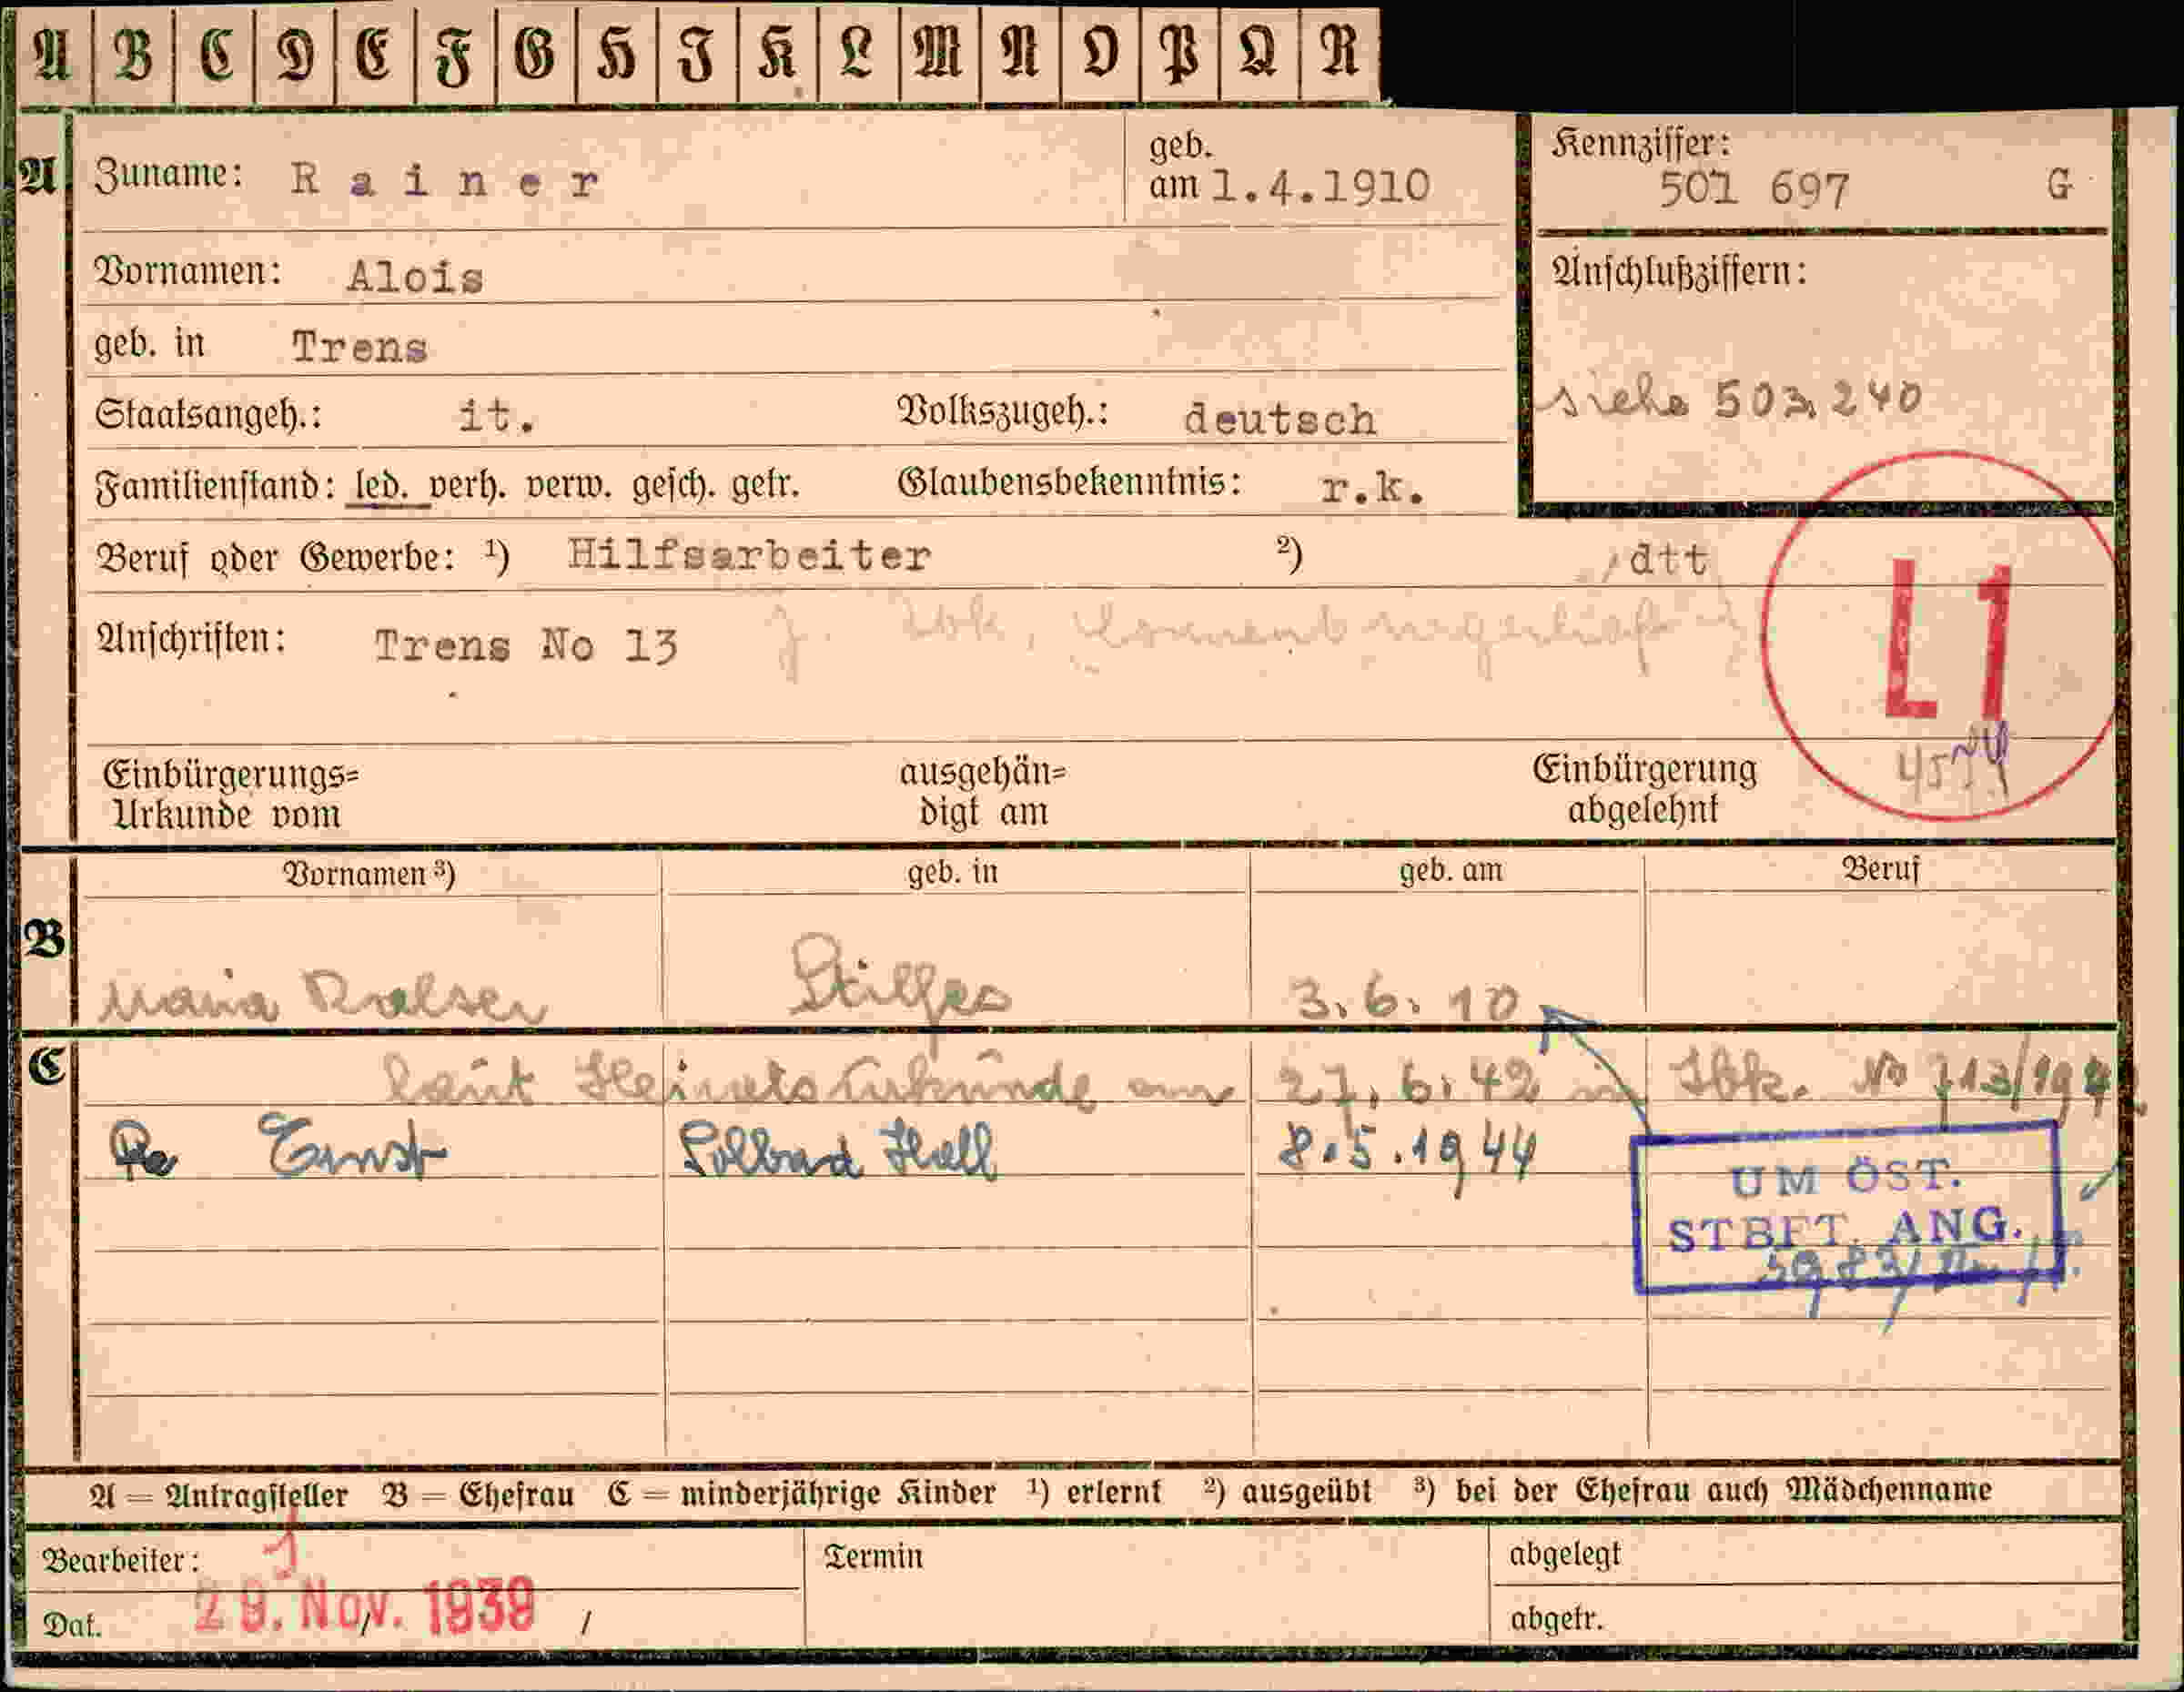 A B C D E F G H I K L M N O P Q R
A Zuname: Rainer geb. am 1.4.1910
Kennziffer: 501 697 G
Vornamen: Alois
Anschlußziffern:
geb. in Trens
siehe 503240
Staatsangeh.: it. Volkszugeh.: deutsch
Familienstand: led. verh. verw. gesch. getr. Glaubensbekenntnis: r.k.
Beruf oder Gewerbe: ¹) Hilfsarbeiter ²) dtt
L1
Anschriften: Trens No 13 Ibk,
Einbürgerungs= Urkunde vom ausgehän= digt am Einbürgerung abgelehnt
Vornamen ³) geb. in geb. am Beruf
B Maria Ralser Stilfes 3.6.10
C laut Heiratsurkunde am 27.6.42 in Ibk. No 713/194
Ernst Solbad Hall 8.5.1944
UM ÖST.
STBFT. ANG.
A = Antragsteller B = Ehefrau C = minderjährige Kinder ¹) erlernt ²) ausgeübt ³) bei der Ehefrau auch Mädchenname
Bearbeiter: Termin abgelegt
Dat. 29. Nov. 1939 / / abgetr.